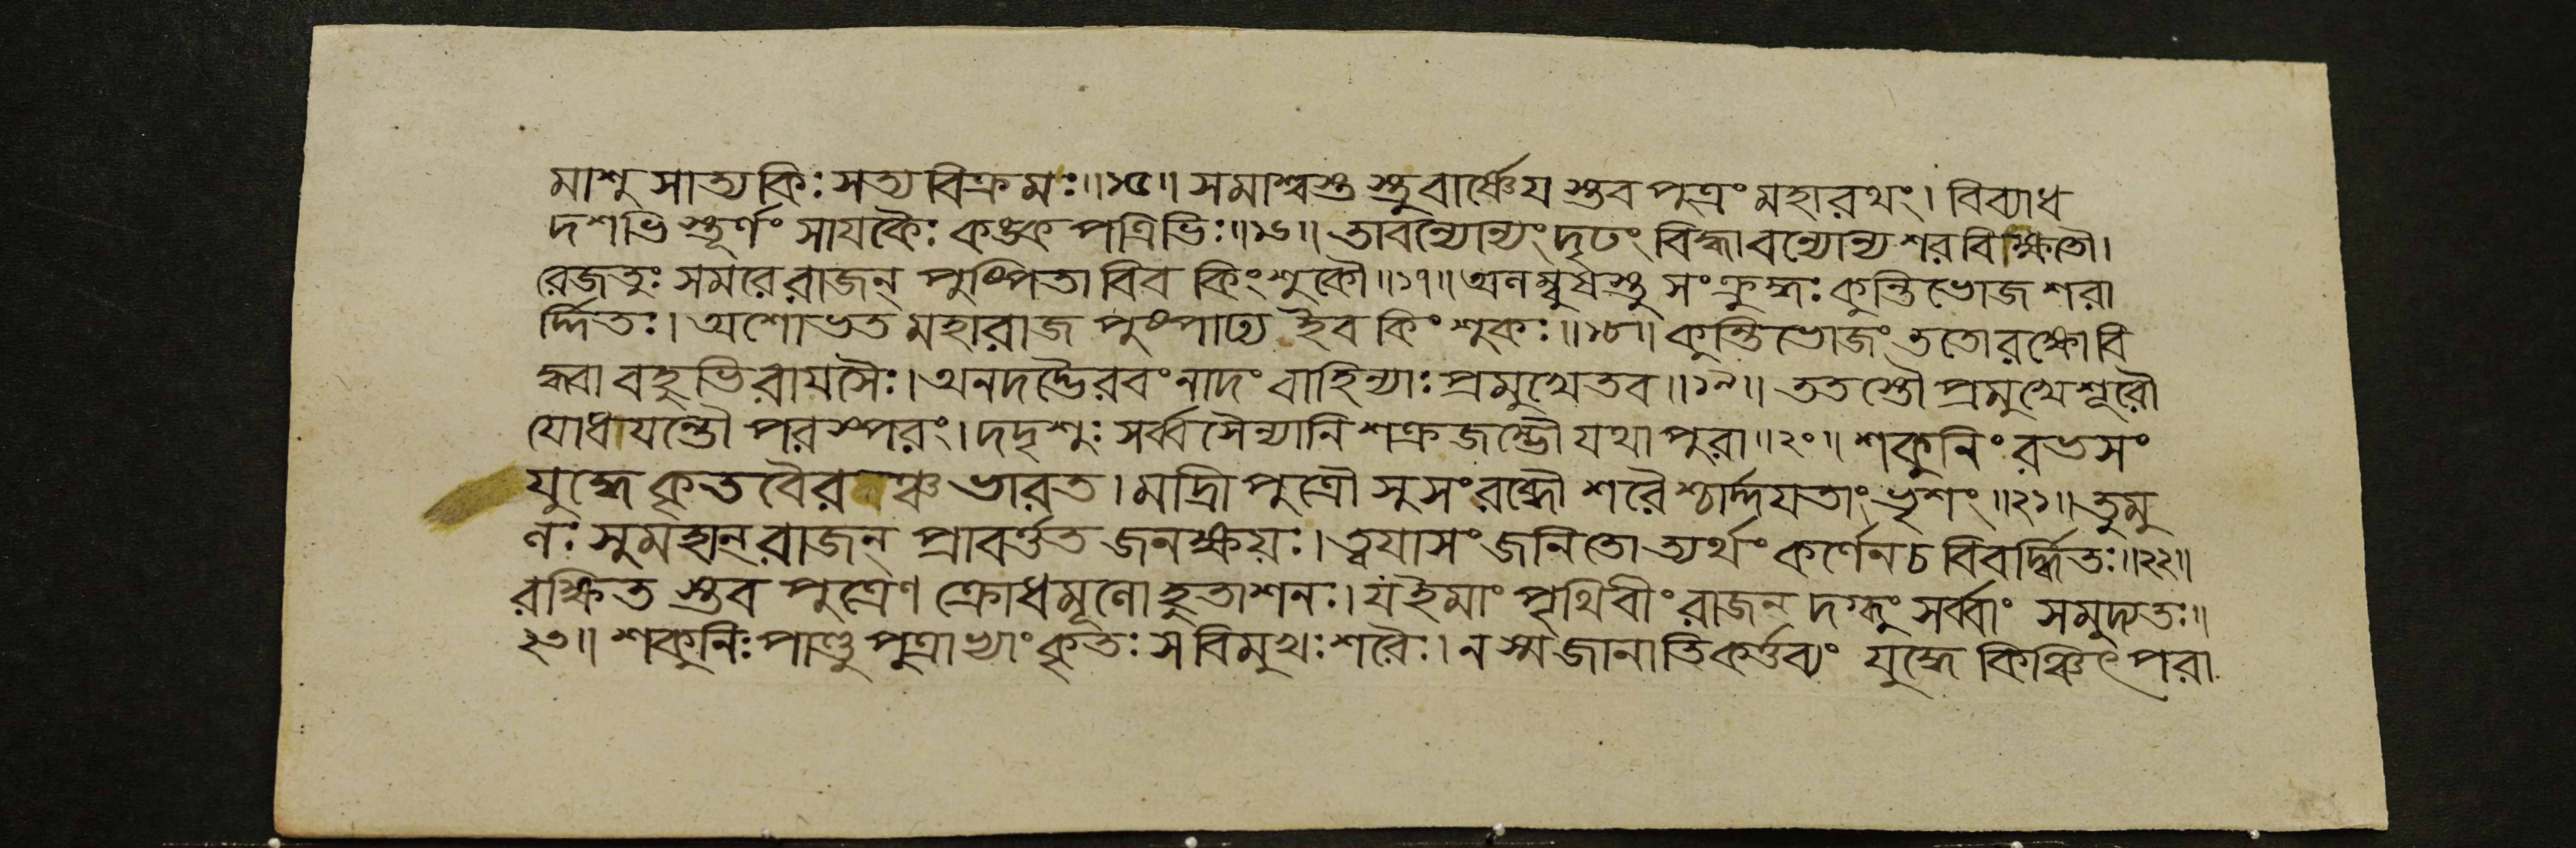 মাশু সাত্যকিঃ সত্যবিক্রমঃ॥১৫॥ সমাশ্বস্তস্তু বার্ষ্ণেয়স্তব পুত্রং মহারথং। বিব্যাধ
দশভিস্তূর্ণং সায়কৈঃ কঙ্কপত্রিভিঃ॥১৬॥ তাবন্যোন্যং দৃঢং বিদ্ধাবন্যোন্যশরবিক্ষিতৌ।
রেজতুঃ সমরে রাজন্ পুষ্পিতাবিব কিংশুকৌ॥১৭॥ অলম্বুষস্তু সংক্রুদ্ধঃ কুন্তিভোজশরা
র্দ্দিতঃ। অশোভত মহারাজ পুষ্পাঢ্য ইব কিংশুকঃ॥১৮॥ কুন্তিভোজং ততো রক্ষো বি
দ্ধ্বা বহুভিরায়সৈঃ। অনদদ্ভৈরবং নাদং বাহিন্যাঃ প্রমুখে তব॥১৯॥ ততস্তৌ প্রমুখে শূরৌ
যোধায়ন্তৌ পরস্পরং। দদৃশুঃ সর্ব্বসৈন্যানি শক্রজম্ভৌ যথা পুরা॥২০॥ শকুনিং রভসং
যুদ্ধে কৃতবৈরঞ্চ ভারত। মাদ্রিপুত্রৌ সুসংরব্ধৌ শরৈশ্চার্দ্দয়তাং ভৃশং॥২১॥ তুমু
লঃ সুমহান্ রাজন্ প্রাবর্ত্তত জনক্ষয়ঃ। ত্বয়া সংজনিতোত্যর্থং কর্ণেন চ বিবর্দ্ধিতঃ॥২২॥
রক্ষিতস্তব পুত্রেণ ক্রোধমূলো হুতাশনঃ। য ইমাং পৃথিবীং রাজন্ দগ্ধুং সর্ব্বাং সমুদ্যতঃ॥
২৩॥ শকুনিঃ পাণ্ডুপুত্রাভ্যাং কৃতঃ স বিমুখঃ শরৈঃ। ন স্ম জানাতি কর্ত্তব্যং যুদ্ধে কিঞ্চিৎ পরা